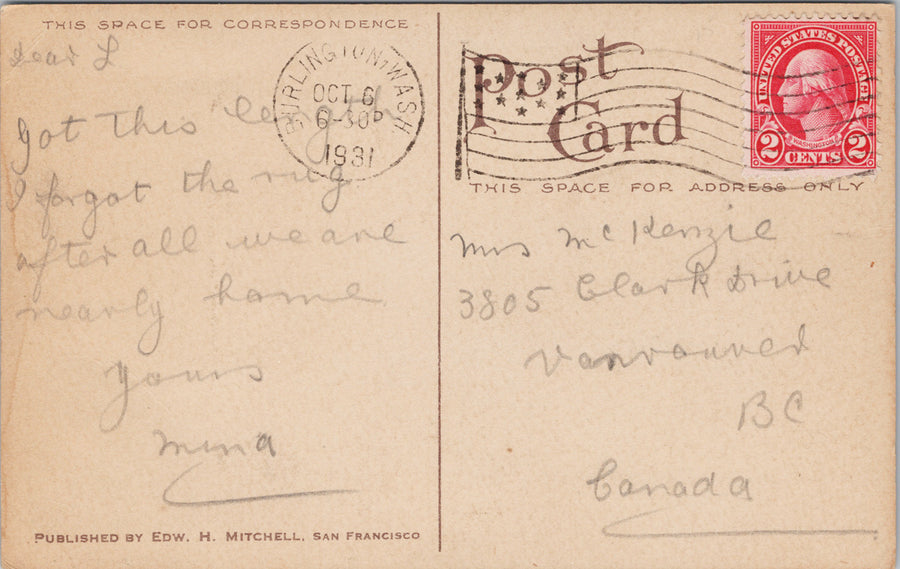 THIS SPACE FOR CORRESPONDENCE
Dear L
got this length
I forgot the rug
after all we are
nearly home
yours
Mina
PUBLISHED BY EDW. H. MITCHELL, SAN FRANCISCO
BURLINGTON, WASH
OCT 6
6-30P
1931
Post
Card
UNITED STATES POSTAGE
WASHINGTON
2 CENTS 2
THIS SPACE FOR ADDRESS ONLY
Mrs McKenzie
3805 Clark Drive
Vancouver
BC
Canada